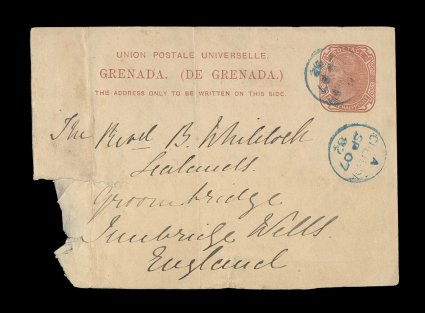 UNION POSTALE UNIVERSELLE.
GRENADA. (DE GRENADA.)
THE ADDRESS ONLY TO BE WRITTEN ON THIS SIDE.
The Revd B. Whitelock
Lealands
Groombridge
Tunbridge Wells
England
A
SP 07
82